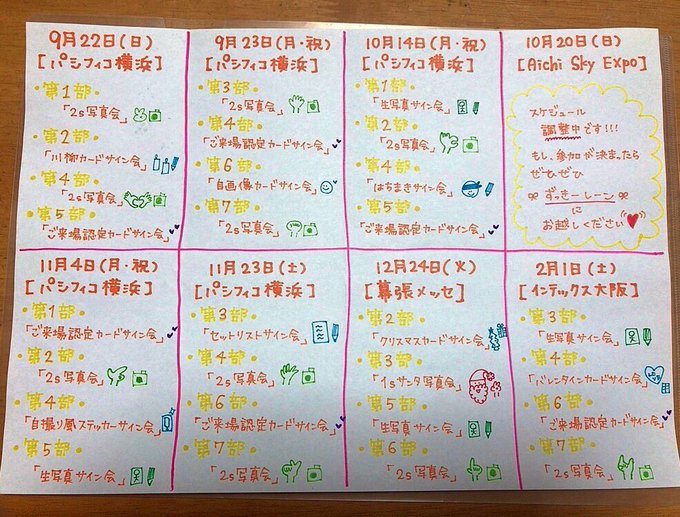 9月22日(日)
[パシフィコ横浜]
第1部
「2s写真会」
第2部
「川柳カードサイン会」
第4部
「2s写真会」
第5部
「ご来場認定カードサイン会」
9月23日(月・祝)
[パシフィコ横浜]
第3部
「2s写真会」
第4部
「ご来場認定カードサイン会」
第6部
「自画像カードサイン会」
第7部
「2s写真会」
10月14日(月・祝)
[パシフィコ横浜]
第1部
「生写真サイン会」
第2部
「2s写真会」
第4部
「はちまきサイン会」
第5部
「ご来場認定カードサイン会」
10月20日(日)
[Aichi Sky Expo]
スケジュール
調整中です!!!
もし、参加が決まったら
ぜひぜひ
ずっきーレーン
に
お越しください
11月4日(月・祝)
[パシフィコ横浜]
第1部
「ご来場認定カードサイン会」
第2部
「2s写真会」
第4部
「自撮り風ステッカーサイン会」
第5部
「生写真サイン会」
11月23日(土)
[パシフィコ横浜]
第3部
「セットリストサイン会」
第4部
「2s写真会」
第6部
「ご来場認定カードサイン会」
第7部
「2s写真会」
12月24日(火)
[幕張メッセ]
第2部
「クリスマスカードサイン会」
第3部
「1sサンタ写真会」
第5部
「生写真サイン会」
第6部
「2s写真会」
2月1日(土)
[インテックス大阪]
第3部
「生写真サイン会」
第4部
「バレンタインカードサイン会」
第6部
「ご来場認定カードサイン会」
第7部
「2s写真会」